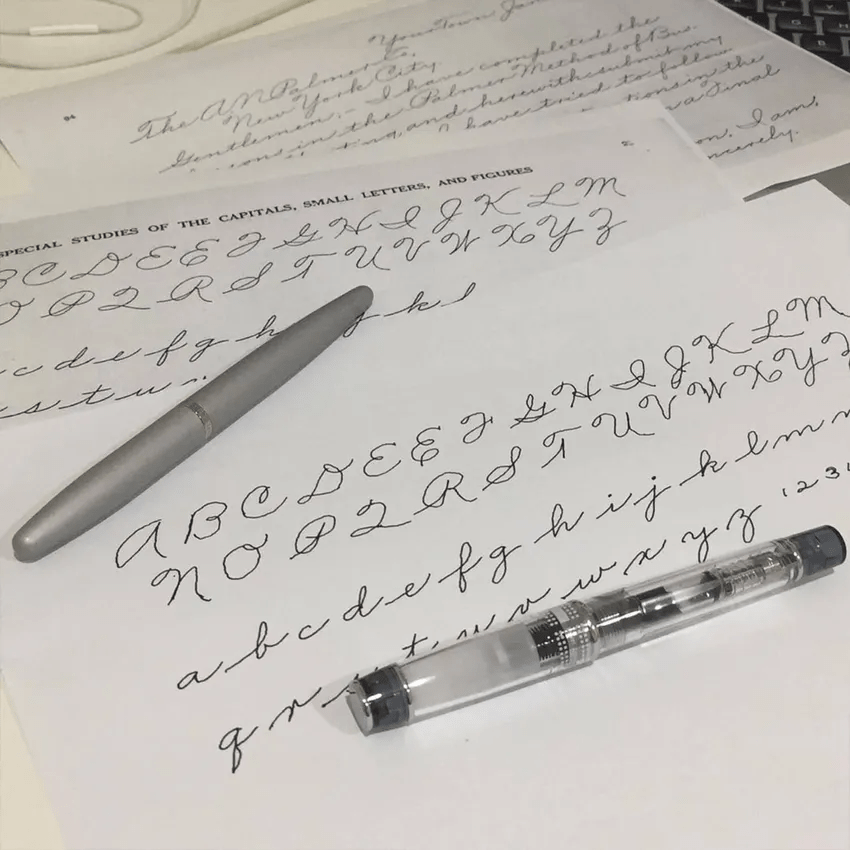 YoursTown, Jan
The A N Palmer Co.
New York City.
Gentlemen:- I have completed the
in the Palmer Method of Bus.
and herewith submit my
I have tried to follow
in the
a Final
on. I am,
SPECIAL STUDIES OF THE CAPITALS, SMALL LETTERS, AND FIGURES
B C D E E F G H I J K L M
O P Q R S T U V W X Y Z
c d e f g h j k l
s t u
A B C D E E F G H I J K L M
N O P Q R S T U V W X Y Z
a b c d e f g h i j k l m n
q r s t u v w x y z 1 2 3